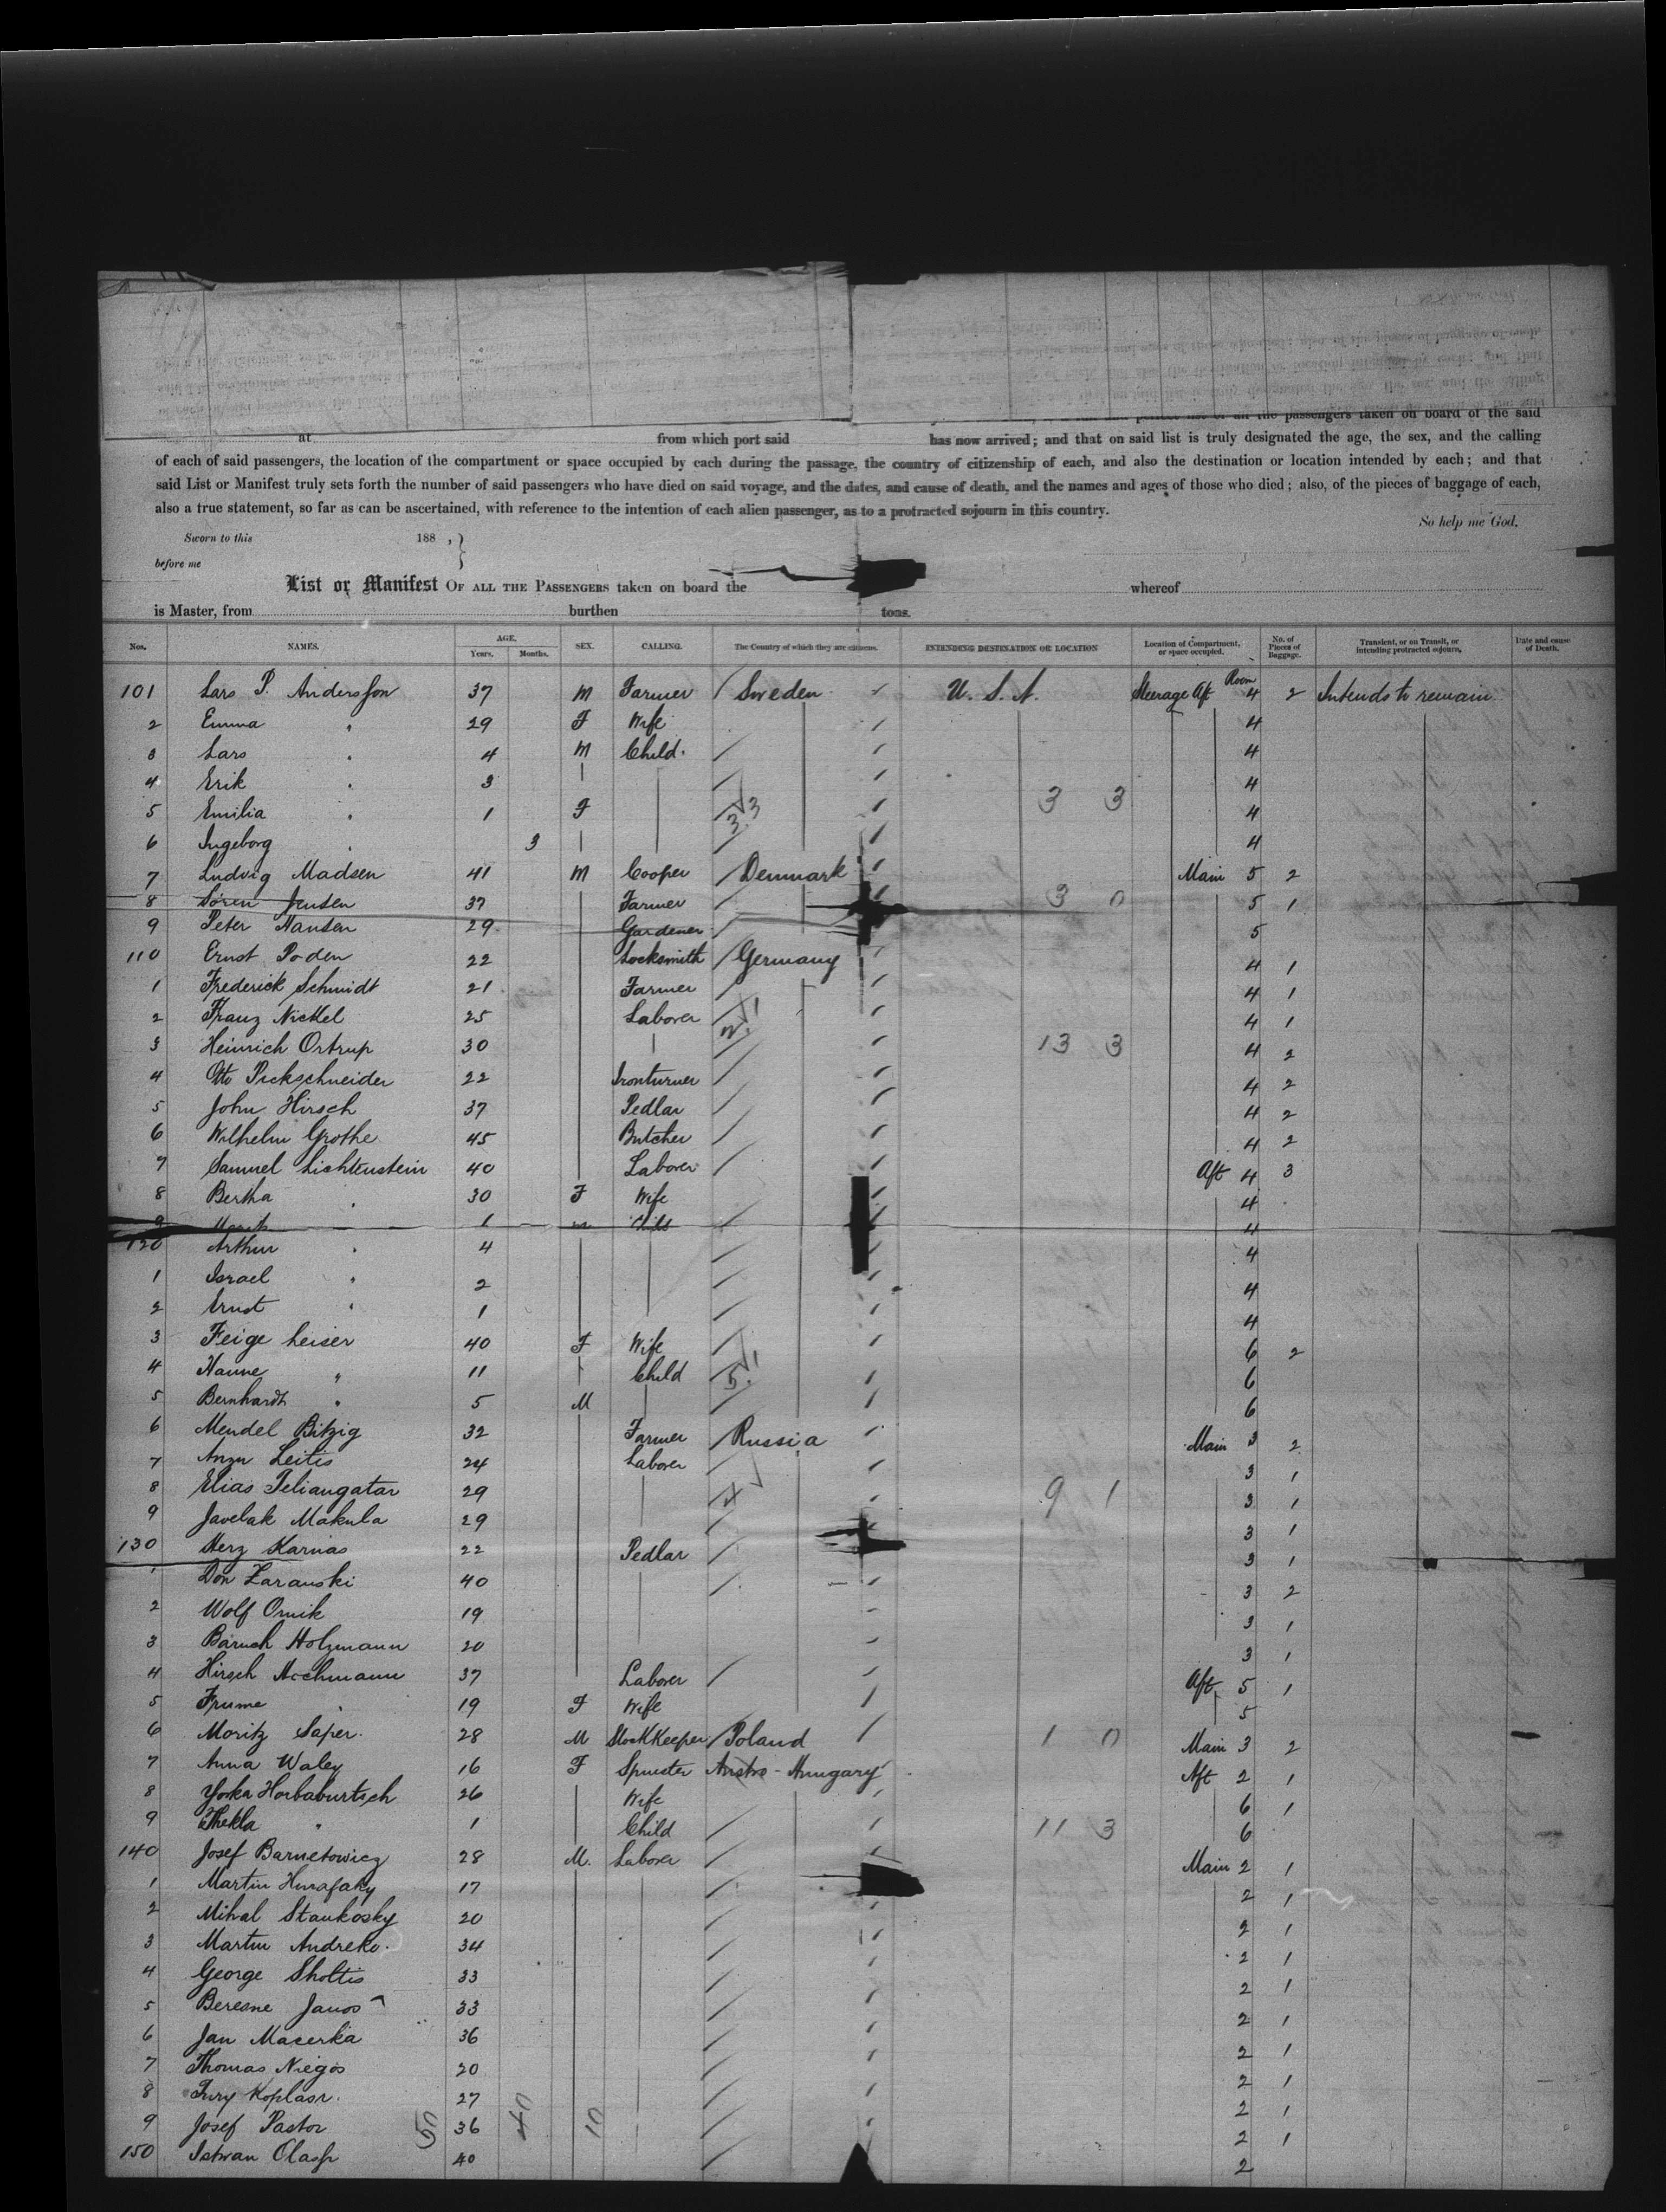 passengers taken on board of the said
at from which port said has now arrived; and that on said list is truly designated the age, the sex, and the calling
of each of said passengers, the location of the compartment or space occupied by each during the passage, the country of citizenship of each, and also the destination or location intended by each; and that
said List or Manifest truly sets forth the number of said passengers who have died on said voyage, and the dates, and cause of death, and the names and ages of those who died; also, of the pieces of baggage of each,
also a true statement, so far as can be ascertained, with reference to the intention of each alien passenger, as to a protracted sojourn in this country.
So help me God.
Sworn to this 188 ,}
before me
List or Manifest OF ALL THE PASSENGERS taken on board the whereof
is Master, from burthen tons.
Nos. NAMES. AGE. Years. Months. SEX. CALLING. The Country of which they are citizens. INTENDING DESTINATION OR LOCATION Location of Compartment, or space occupied. No. of Pieces of Baggage. Transient, or on Transit, or intending protracted sojourn. Date and cause of Death.
101 Lars P. Andersson 37 M Farmer Sweden U. S. A. Steerage Aft Room 4 2 Intends to remain
2 Emma " 29 F Wife 4
3 Lars " 4 M Child 4
4 Erik " 3 4
5 Emilia " 1 F 3 3 4
6 Ingeborg " 3 4
7 Ludvig Madsen 41 M Cooper Denmark Main 5 2
8 Sören Jensen 37 Farmer 3 0 5 1
9 Peter Hansen 29 Gardener 5
110 Ernst Poden 22 Locksmith Germany 4 1
1 Frederick Schmidt 21 Farmer 4 1
2 Franz Nickel 25 Laborer 4 1
3 Heinrich Ortrup 30 13 3 4 2
4 Otto Pickschneider 22 Ironturner 4 2
5 John Hirsch 37 Pedlar 4 2
6 Wilhelm Grothe 45 Butcher 4 2
7 Samuel Lichtenstein 40 Laborer Aft 4 3
8 Bertha " 30 F Wife 4
9 1 M Child 4
120 Arthur " 4 4
1 Israel " 2 4
2 Ernst " 1 4
3 Feige Leiser 40 F Wife 6 2
4 Hanne " 11 Child 6
5 Bernhardt " 5 M 6
6 Mendel Bitzig 32 Farmer Russia Main 3 2
7 Anzu Leitis 24 Laborer 3 1
8 Elias Teliangatar 29 9 1 3 1
9 Javelak Makula 29 3 1
130 Herz Karnas 22 Pedlar 3 1
1 Don Zaranski 40 3 2
2 Wolf Ornik 19 3 1
3 Baruch Holzmann 20 3 1
4 Hirsch Achmann 37 Laborer Aft 5 1
5 Frume " 19 F Wife 5
6 Moritz Saper 28 M Stockkeeper Poland 1 0 Main 3 2
7 Anna Waley 16 F Spinster Austro-Hungary Aft 2 1
8 Yorka Horbaburtsch 26 Wife 6 1
9 Thekla " 1 Child 11 3 6
140 Josef Barnetowicz 28 M. Laborer Main 2 1
1 Martin 17 2 1
2 Mihal Stankosky 20 2 1
3 Martin Andreko 34 2 1
4 George Sholtis 33 2 1
5 Beresne Janos 33 2 1
6 Jan Macerka 36 2 1
7 Thomas Niegos 20 2 1
8 Jury Koplasr 27 2 1
9 Josef Pastor 36 2 1
150 Istwan 40 2
50 40 10